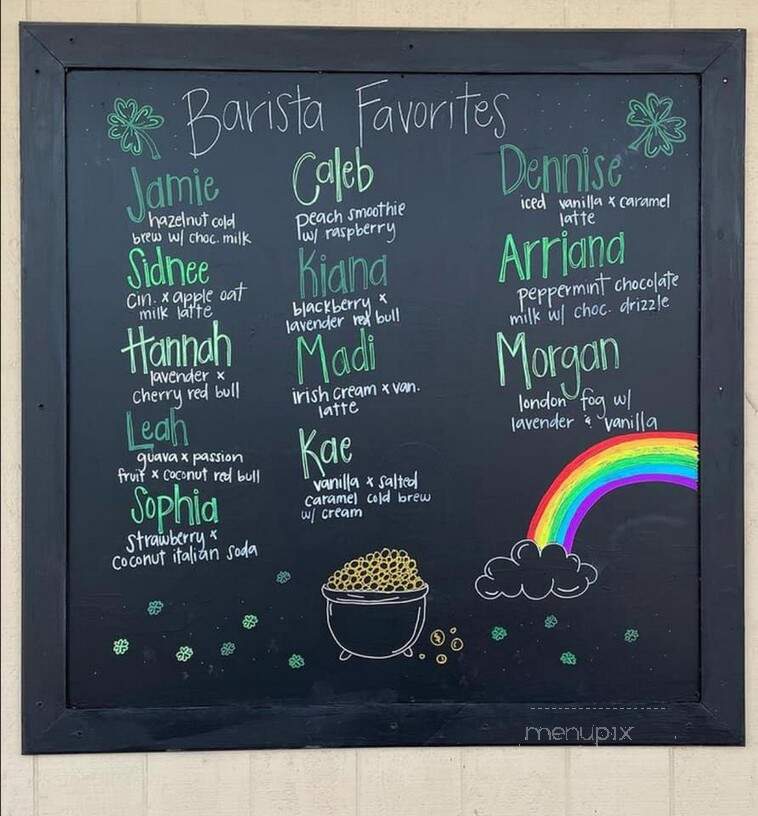 Barista Favorites
Jamie
hazelnut cold
brew w/ choc. milk
Sidnee
cin. x apple oat
milk latte
Hannah
lavender x
cherry red bull
Leah
guava x passion
fruit x coconut red bull
Sophia
strawberry x
coconut italian soda
Caleb
peach smoothie
w/ raspberry
Kiana
blackberry x
lavender red bull
Madi
irish cream x van.
latte
Kae
vanilla x salted
caramel cold brew
w/ cream
Dennise
iced vanilla x caramel
latte
Arriana
peppermint chocolate
milk w/ choc. drizzle
Morgan
london fog w/
lavender & vanilla
menupix